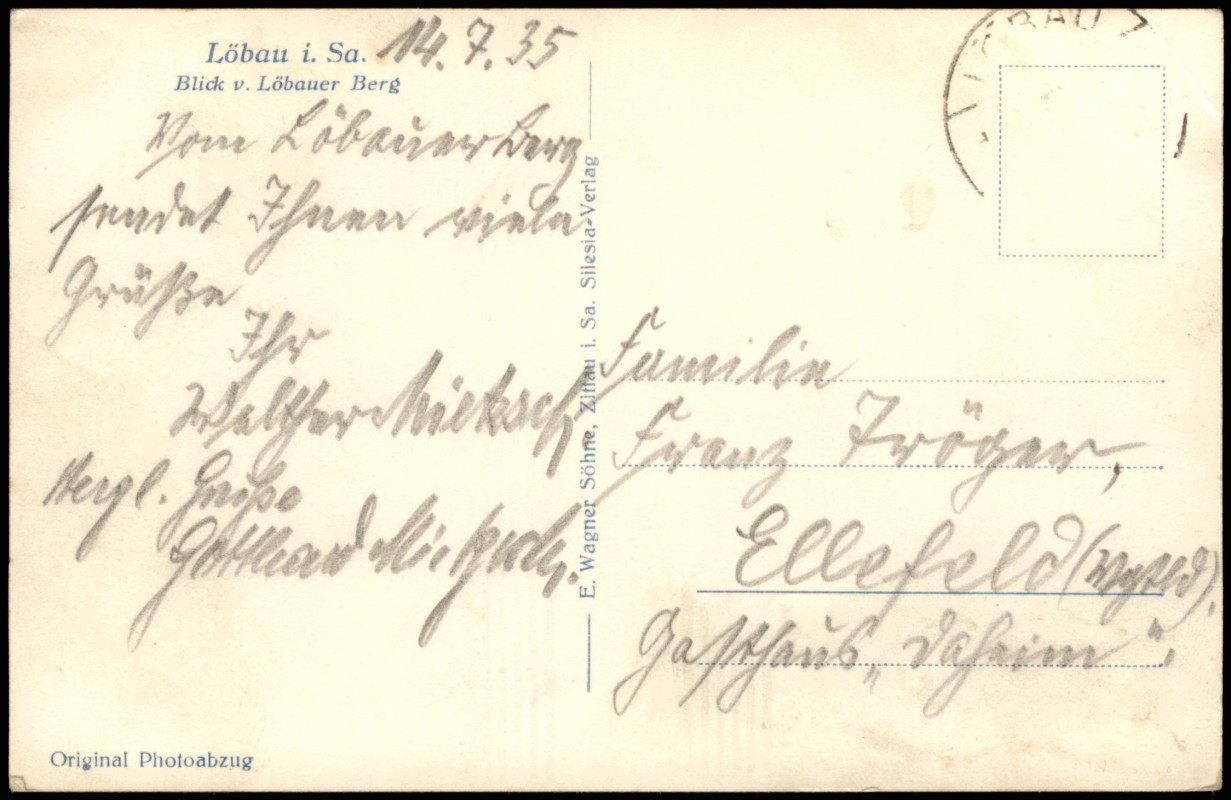 Löbau i. Sa. 14.7.35
Blick v. Löbauer Berg
Vom Löbauer Berg
sendet Ihnen viele
Grüße
Ihr
Walther
Hergl. Grüße
Gotthard
Original Photoabzug
E. Wagner Söhne, Zittau i. Sa. Silesia-Verlag
LÖBAU
Familie
Franz Tröger,
Ellefeld (Vgtld).
Gasthaus „Daheim".